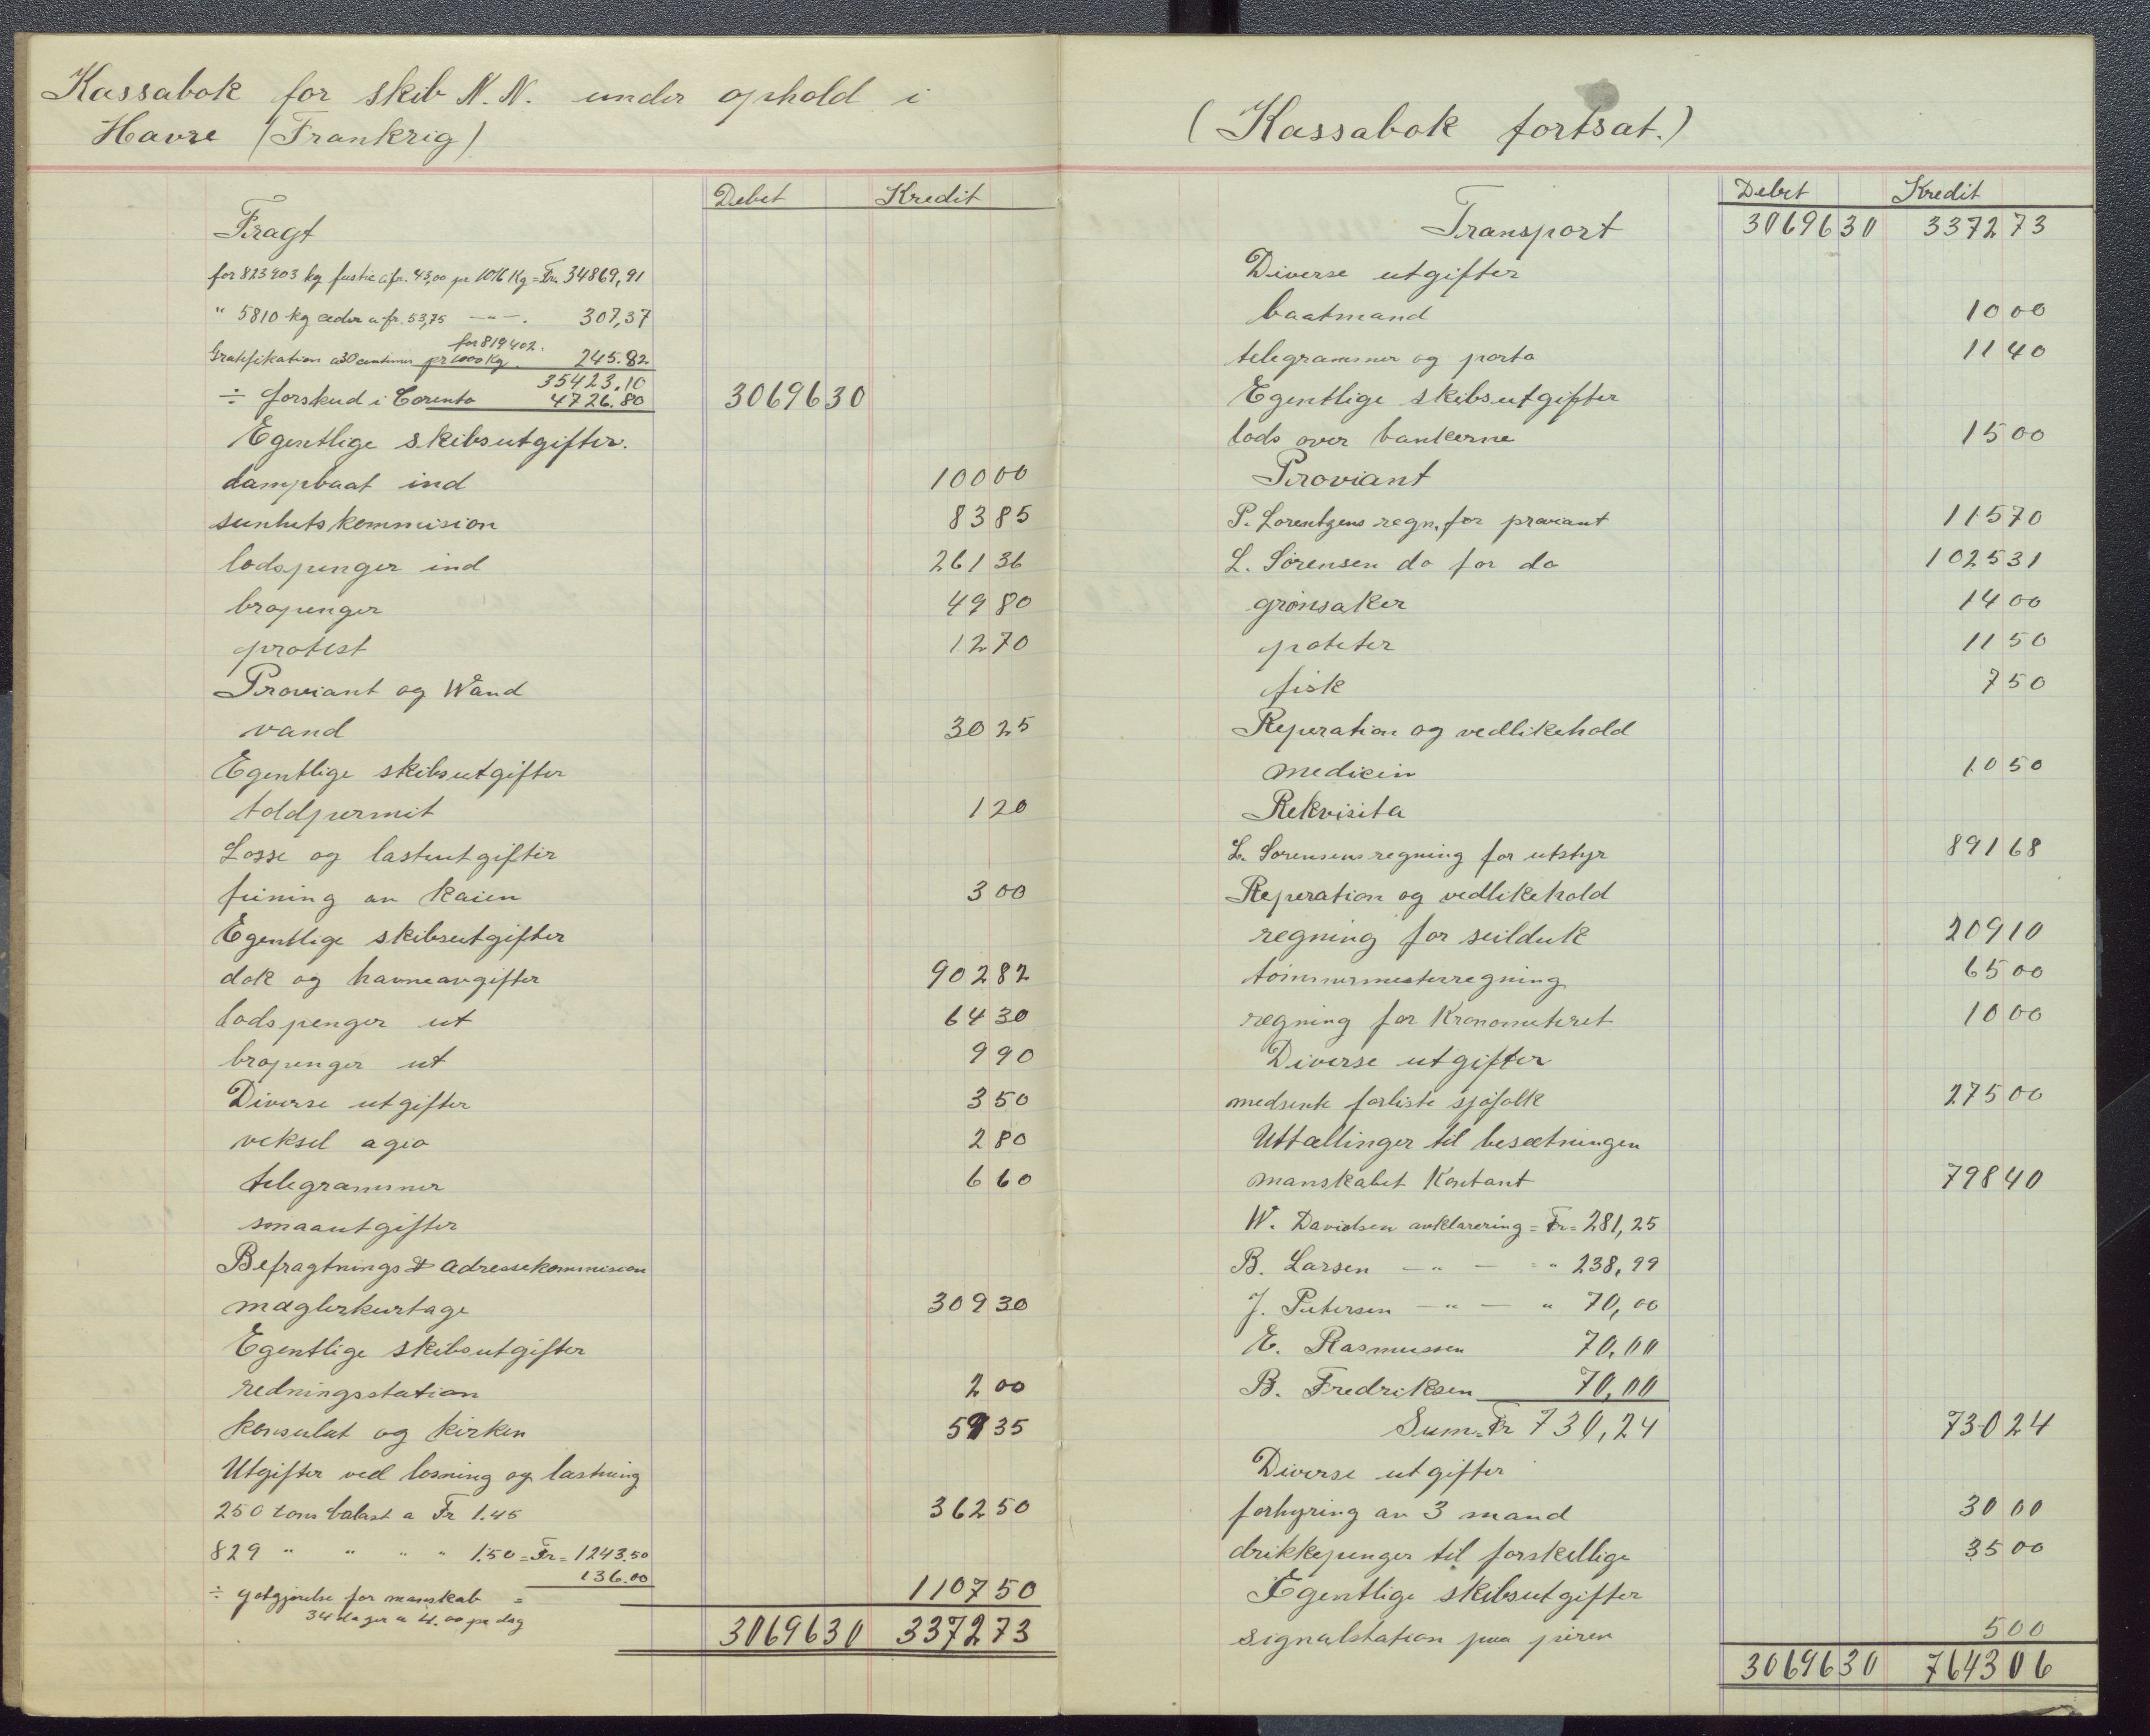 Kassabok for skib N. N. under ophold i
Havre (Frankrig)
Debet Kredit
Fragt
for 823903 kg fustic a fr. 43,00 pr 1016 Kg = Fr. 34869,91
" 5810 kg ceder a fr. 53,75 — " — . 307,37
for 819402.
Gratifikation a 30 centimer pr 1000 Kg. 245.82
35423.10
÷ forskud i Corinto 4726.80 30696 30
Egentlige skibsutgifter.
dampbaat ind 100 00
sunhetskommision 83 85
lodspenger ind 261 36
bropenger 49 80
protest 12 70
Proviant og Wand
vand 30 25
Egentlige skibsutgifter
toldpermit 1 20
Losse og lasteutgifter
feining av kaien 3 00
Egentlige skibsutgifter
dok og havneavgifter 902 82
lodspenger ut 64 30
bropenger ut 9 90
Diverse utgifter 3 50
veksel agio 2 80
telegrammer 6 60
smaautgifter
Befragtnings & Adressekommision
mæglerkurtage 309 30
Egentlige skibsutgifter
redningsstation 2 00
konsulat og kirken 59 35
Utgifter ved losning og lastning
250 tons balast a Fr 1.45 362 50
829 " " " " 1.50 = Fr = 1243.50
136.00
÷ gotgjørelse for manskab = 1107 50
34 dager a 4.00 pr dag
30696 30 3372 73
(Kassabok fortsat.)
Debet Kredit
Transport 30696 30 3372 73
Diverse utgifter
baatmand 10 00
telegrammer og porto 11 40
Egentlige skibsutgifter
lods over bankerne 15 00
Proviant
P. Lorentzens regn. for proviant 115 70
L. Sørensen do for do 1025 31
grønsaker 14 00
poteter 11 50
fisk 7 50
Reperation og vedlikehold
medicin 10 50
Rekvisita
L. Sørensens regning for utstyr 891 68
Reperation og vedlikehold
regning for seilduk 209 10
tømmermesterregning 65 00
regning for Kronometeret 10 00
Diverse utgifter
medsente forliste sjøfolk 275 00
Uttællinger til besætningen
manskabet Kontant 798 40
W. Davidsen avklarering = Fr = 281,25
B. Larsen — " — = " 238,99
J. Petersen — " — " 70,00
E. Rasmussen 70,00
B. Fredriksen 70,00
Sum. Fr 730,24 730 24
Diverse utgifter
forhyring av 3 mand 30 00
drikkepenger til forskellige 35 00
Egentlige skibsutgifter
signalstation paa piren 5 00
30696 30 7643 06